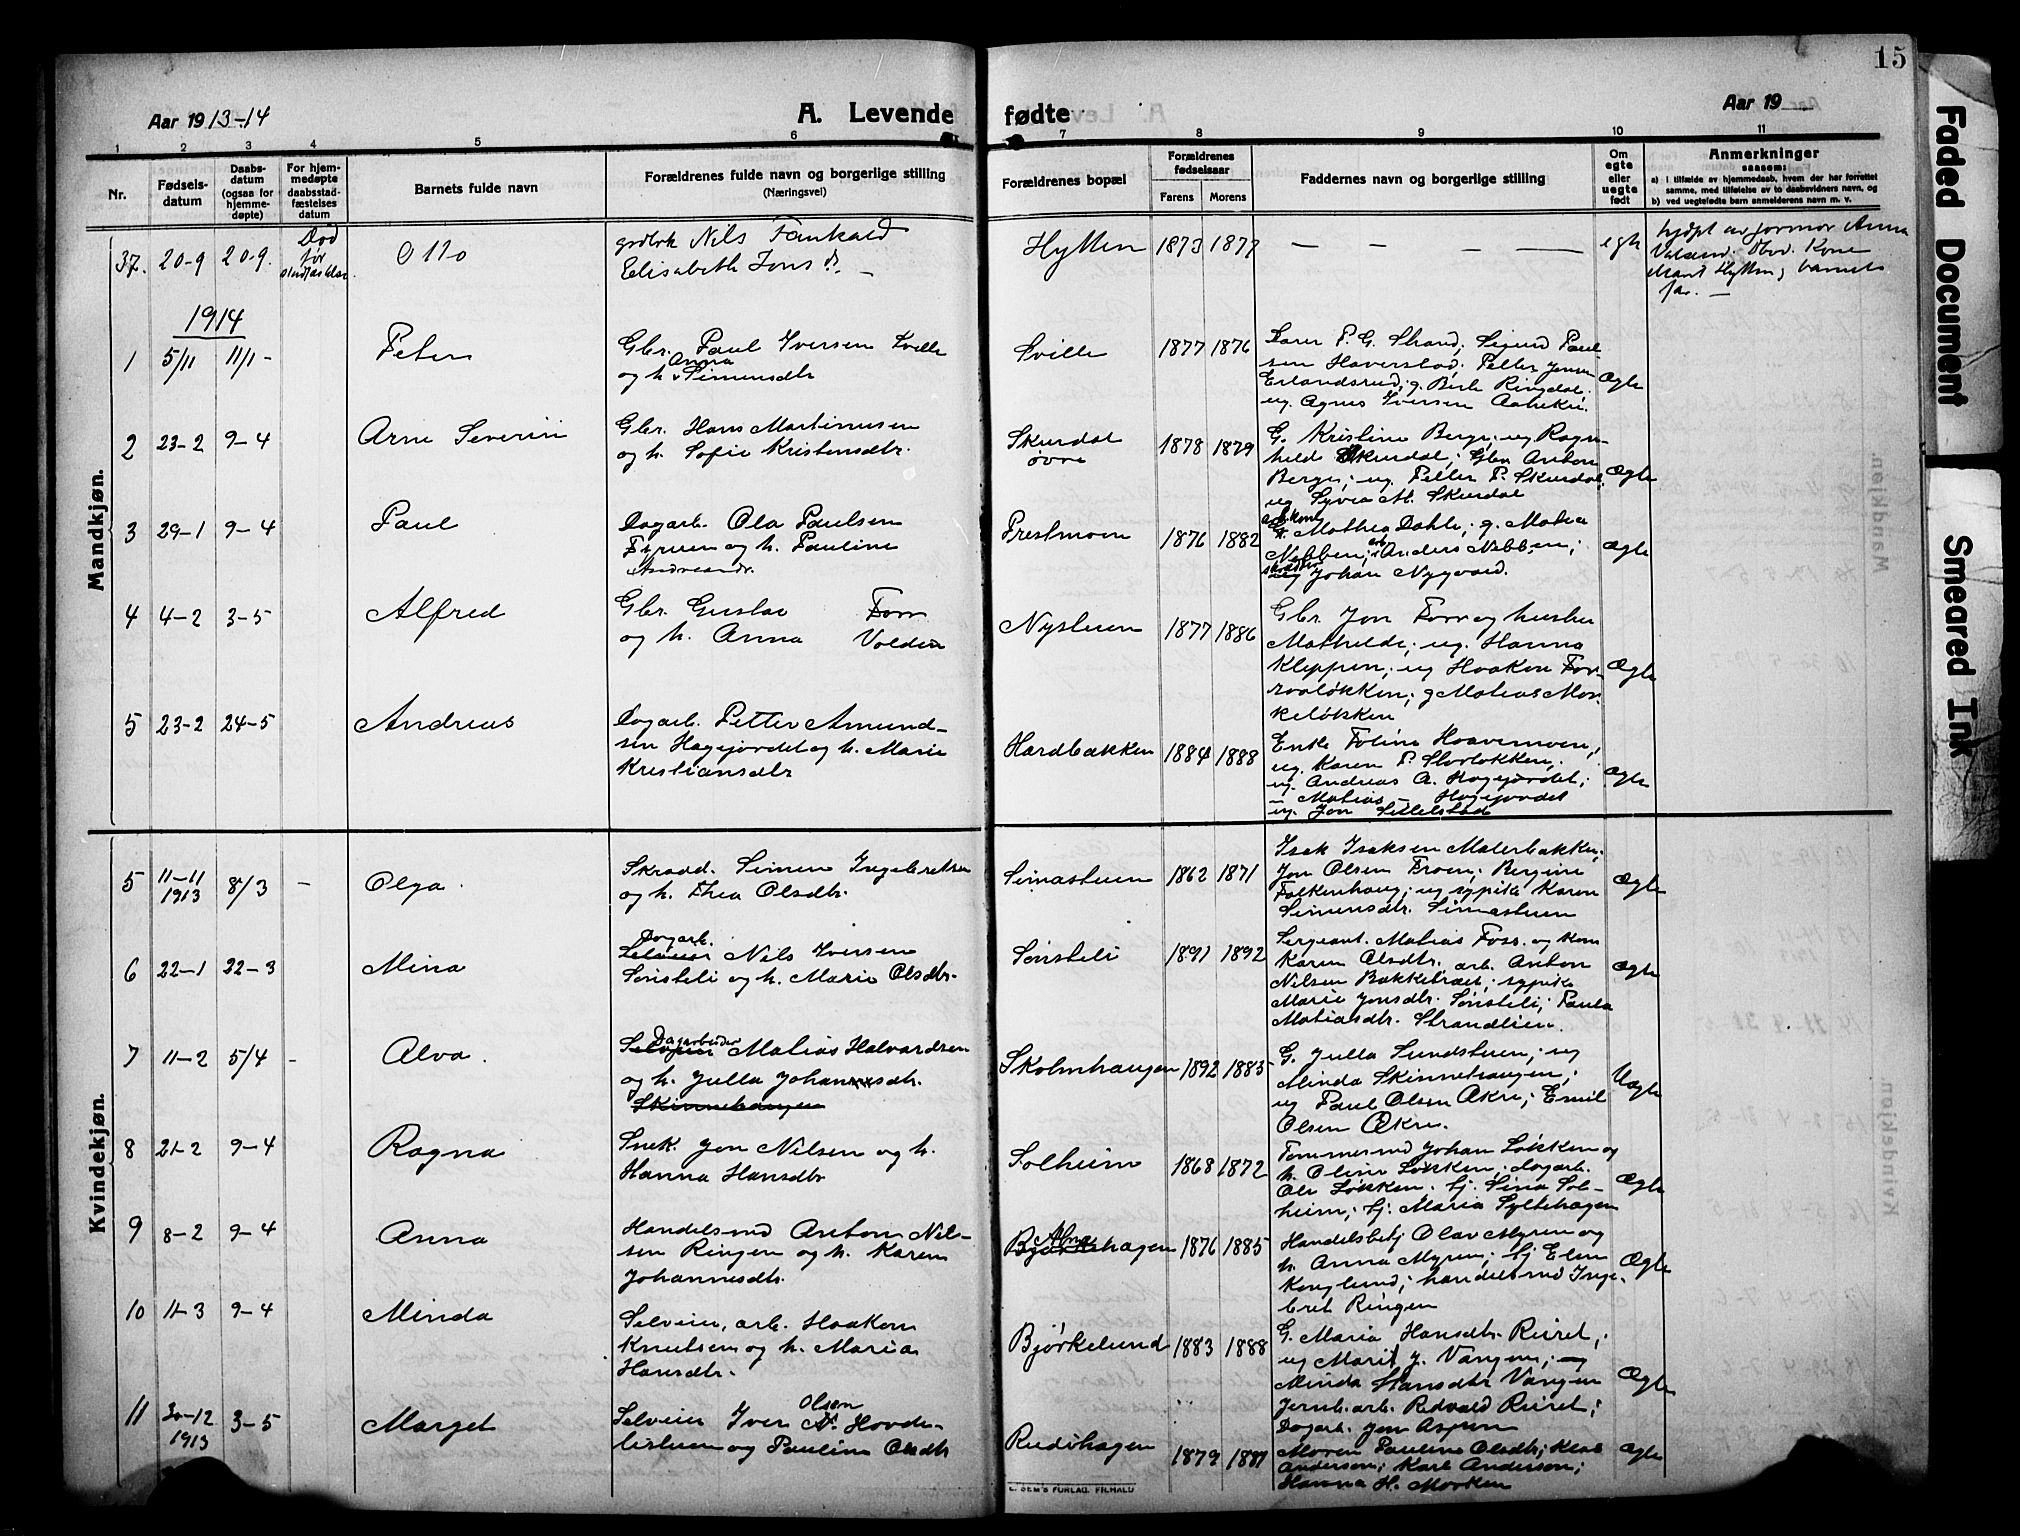 15
Aar 1913-14
A. Levende fødte
Aar 19
1 2 3 4 5 6 7 8 9 10 11
Nr.
Fødsels-
datum
Daabs-
datum
(ogsaa for
hjemme-
døpte)
For hjem-
medøpte
daabsstad-
fæstelses
datum
Barnets fulde navn
Forældrenes fulde navn og borgerlige stilling
(Næringsvei)
Forældrenes bopæl
Forældrenes
fødselsaar
Farens Morens
Faddernes navn og borgerlige stilling
Om
egte
eller
uegte
født
Anmerkninger
saasom:
a) i tilfælde av hjemmedaab, hvem der har forrettet
samme, med tilføielse av to daabsvidners navn, og
b) ved uegtefødte barn anmelderens navn m. v.
Mandkjøn.
37. 20-9 20-9. Død
før
Otto
Nils
Elisabeth Jons d.
Hytten 1873 1877 — — —
hjdpt av jormor Anna
Kone
Marit Hytten, barnets
far. —
1914
1 5/11 11/1 -
Peter
Gbr. Paul Iversen Sville
og h. Anna Simensdtr
Sville 1877 1876
Lærer P. G. Strand, Sigurd Paul-
sen Haverstad, Petter Jensen
Erlandsrud, g. Berte Ringdal.
ug. Agnes Iversen
Ægte
2 23-2 9-4
Arne Severin
Gbr. Hans Martinusen
og h. Sofie Kristensdtr.
Skurdal
øvre
1878 1879
G. Kristine Berge, ug Ragn-
hild Skurdal, Gbr Anton
Berge, ug. Petter P. Skurdal,
ug Syver M. Skurdal
Ægte
3 29-1 9-4
Paul
Dagarb. Ola Paulsen
og h. Pauline
Andreasdr.
Prestmoen 1876 1882
arb.kone
Mathea Dahle, g. Matea
Nebben, arb. Anders Nebben,
ug Johan Nygaard.
Ægte
4 4-2 3-5
Alfred
Gbr. Gustav Forr
og h. Anna Volden
Nystuen 1877 1886
Gbr. Jon Forr og hustru
Mathilde, ug. Hanna
Kleppen, ug Haakon For-
raaløkken, g Matias Mor-
keløkken
Ægte
5 23-2 24-5
Andreas
Dagarb. Petter Amund-
sen Hagejordet og h. Marie
Kristiansdtr
Hardbakken 1884 1888
Enke Foline Haavemoen,
ug. Karen P. Storløkken,
ug. Andreas A. Hagejordet,
- Matias - Hagejordet
ug. Jon Sillelstad
Ægte
Kvindekjøn.
5 11-11
1913 8/3 -
Olga.
Skradd. Simen Ingebretsen
og h. Thea Olsdtr.
Simastuen 1862 1871
Isak Isaksen Malerbakken,
Jon Olsen Froen, Bergine
Falkenhaug, ug sypike Karen
Simensdtr. Simastuen
Ægte
6 22-1 22-3
Mina
Dagarb.
Selveier Nils Iversen
Sønsteli og h. Marie Olsdtr.
Sønsteli 1891 1892
Sergeant. Matias Foss. og kone
Karen Olsdtr. arb. Anton
Nilsen Bakketræet, sypike
Marie Jonsdtr. Sønsteli, Paula
Matiasdtr. Strandlien.
Ægte
7 11-2 5/4 -
Alva.
Dagarbeider
Selveier Matias Halvardsen
og h. Julla Johannesdtr.
Skinnehaugen
Skolmhaugen 1892 1885
G. Julla Sundstuen, ug
Minda Skinnehaugen,
ug Paul Olsen Økre, Emil
Olsen Økre.
Uægte
8 21-2 9-4
Ragna
Snek. Jon Nilsen og h.
Hanna Hansdtr
Solheim 1868 1872
Tømmermd Johan Løkken og
h. Oline Løkken, dagarb.
Ole Løkken. tj. Sina Sol-
heim, tj. Maria Syltehagen
Ægte
9 8-2 9-4
Anna
Handelsmd Anton Nil-
sen Ringen og h. Karen
Johannesdtr.
Bjørkehagen 1876 1885
Handelsbetj Olav Myren og
h. Anna Myren, tj Elen
Kruglund, handelsmd Inge-
bret Ringen
Ægte
10 11-3 9-4
Minda
Selveier, arb. Haakon
Knutsen og h. Maria
Hansdtr.
Bjørkelund 1883 1888
G. Maria Hansdtr. Ruiret,
ug Marit J. Vangen, ug
Minda Hansdtr Vangen
Jernb.arb. Redvald Ruiret,
Dagarb. Jon Aspen
Ægte
11 30-12
1913 3-5
Marget
Selveier Iver Olsen Hovde-
listuen og Pauline Olsdtr
Rudshagen 1879 1881
Moren Pauline Olsdtr, Klas
Anderson, Karl Anderson,
Hanna H. Morken
Ægte
E. SEM'S FORLAG. FILHALD
Faded Document
Smeared Ink